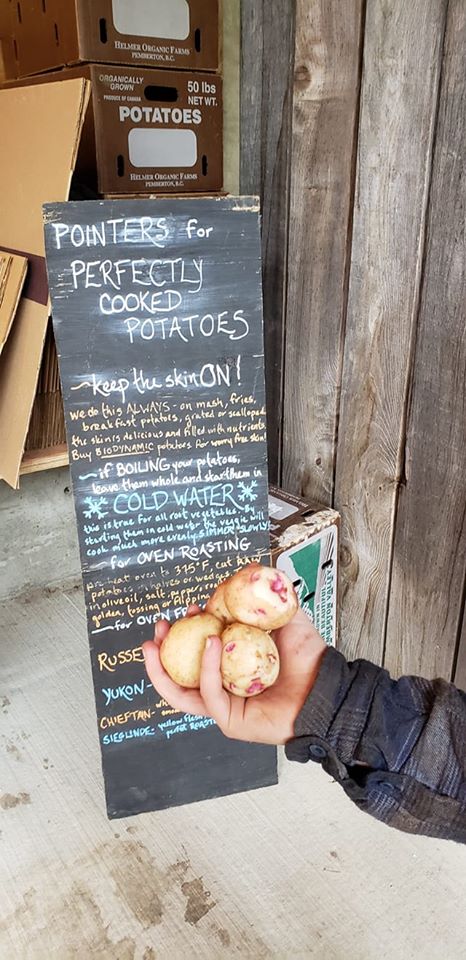 HELMER ORGANIC FARMS
PEMBERTON, B.C.
ORGANICALLY
GROWN
PRODUCE OF CANADA
50 lbs
NET WT.
POTATOES
HELMER ORGANIC FARMS
PEMBERTON, B.C.
POINTERS for
PERFECTLY
COOKED
POTATOES
~keep the skin ON!
we do this ALWAYS - on mash, fries,
breakfast potatoes, grated or scalloped
the skin is delicious and filled with nutrients
Buy BIODYNAMIC potatoes for worry free skin!
~if BOILING your potatoes,
leave them whole and start them in
COLD WATER
this is true for all root vegetables. By
starting them in cold water the veggie will
cook much more evenly. SIMMER SLOWLY
~for OVEN ROASTING
pre heat oven to 375°F, cut
potatoes in halves or wedges,
in olive oil, salt, pepper,
golden, tossing or flipping
~for OVEN
RUSSE
YUKON-
CHIEFTAIN-
SIEGLINDE- yellow flesh,
perfect ROAST